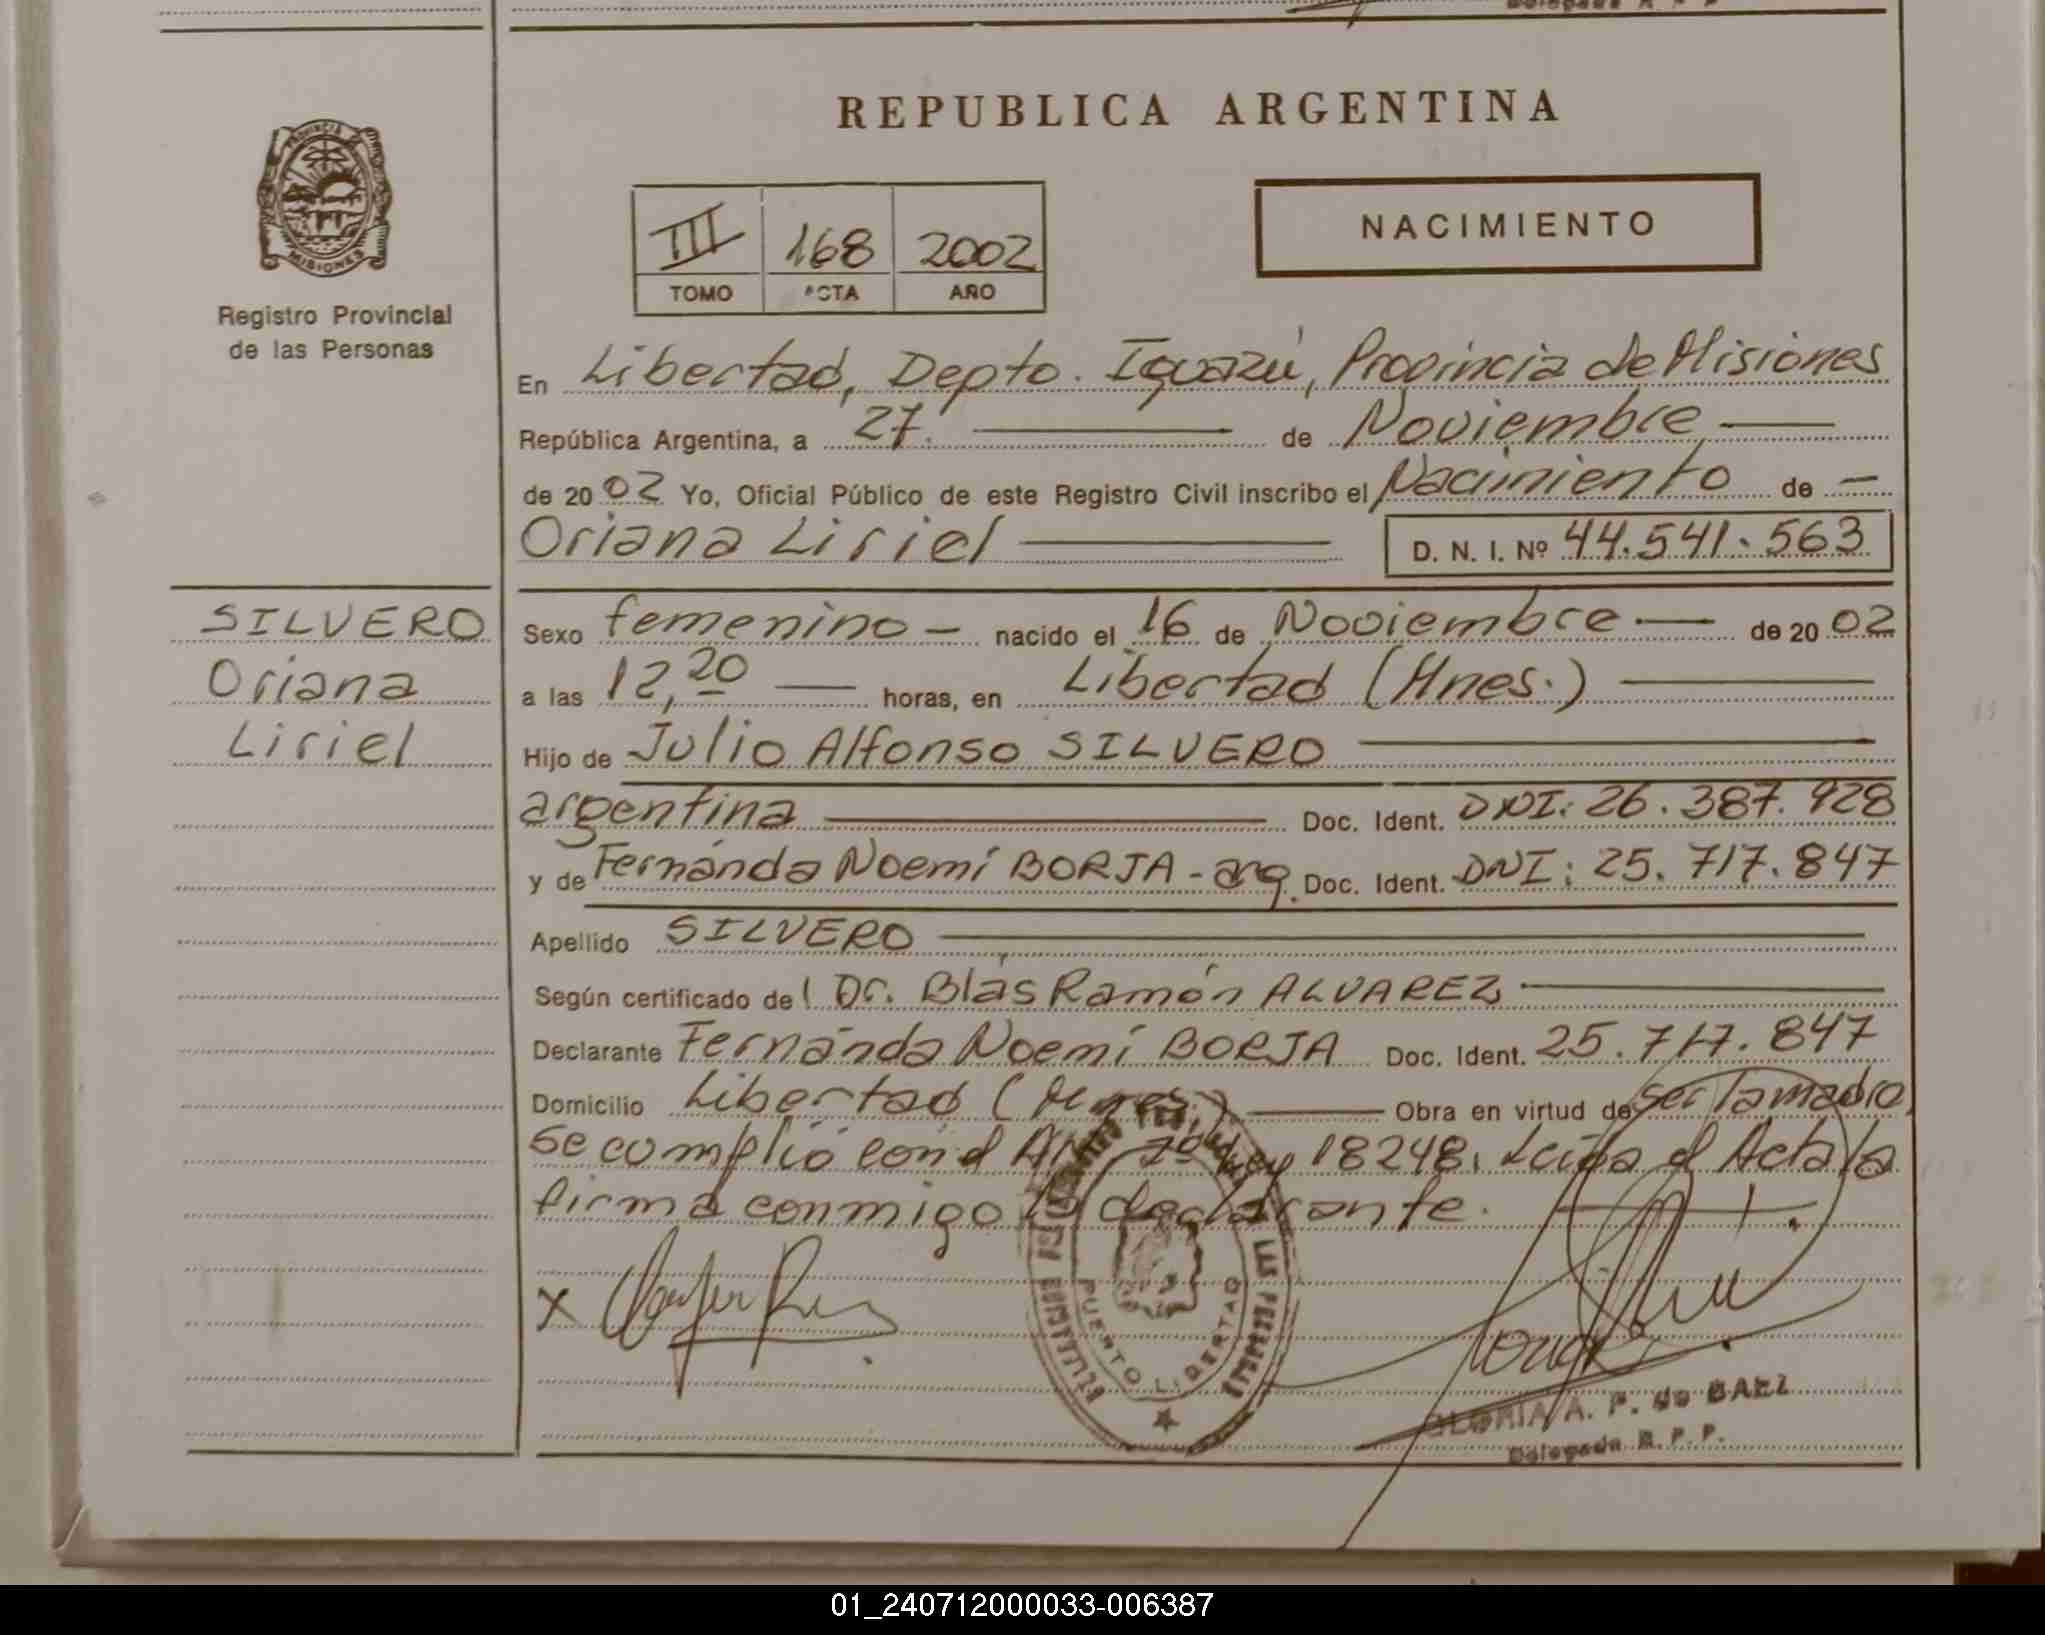 REPUBLICA ARGENTINA
PROVINCIA DE
MISIONES
Registro Provincial
de las Personas
III 168 2002
TOMO ACTA AÑO
NACIMIENTO
En Libertad, Depto. Iguazú, Provincia de Misiones
República Argentina, a 27. de Noviembre
de 2002 Yo, Oficial Público de este Registro Civil inscribo el Nacimiento de
Oriana Liriel D. N. I. Nº 44.541.563
SILVERO
Oriana
Liriel
Sexo femenino nacido el 16 de Noviembre de 2002
a las 12,20 horas, en Libertad (Mnes.)
Hijo de Julio Alfonso SILVERO
argentina Doc. Ident. DNI: 26.387.928
y de Fernánda Noemí BORJA - arg. Doc. Ident. DNI: 25.717.847
Apellido SILVERO
Según certificado del Dr. Blás Ramón ALVAREZ
Declarante Fernánda Noemí BORJA Doc. Ident. 25.717.847
Domicilio Libertad (Mnes.) Obra en virtud de ser la madre
Se cumplió con el Art. Ley 18248. Leída el Acta la
firma conmigo la declarante.
X
PUERTO LIBERTAD
GLORIA A. P. de BAEZ
Delegada R. P. P.
01_240712000033-006387